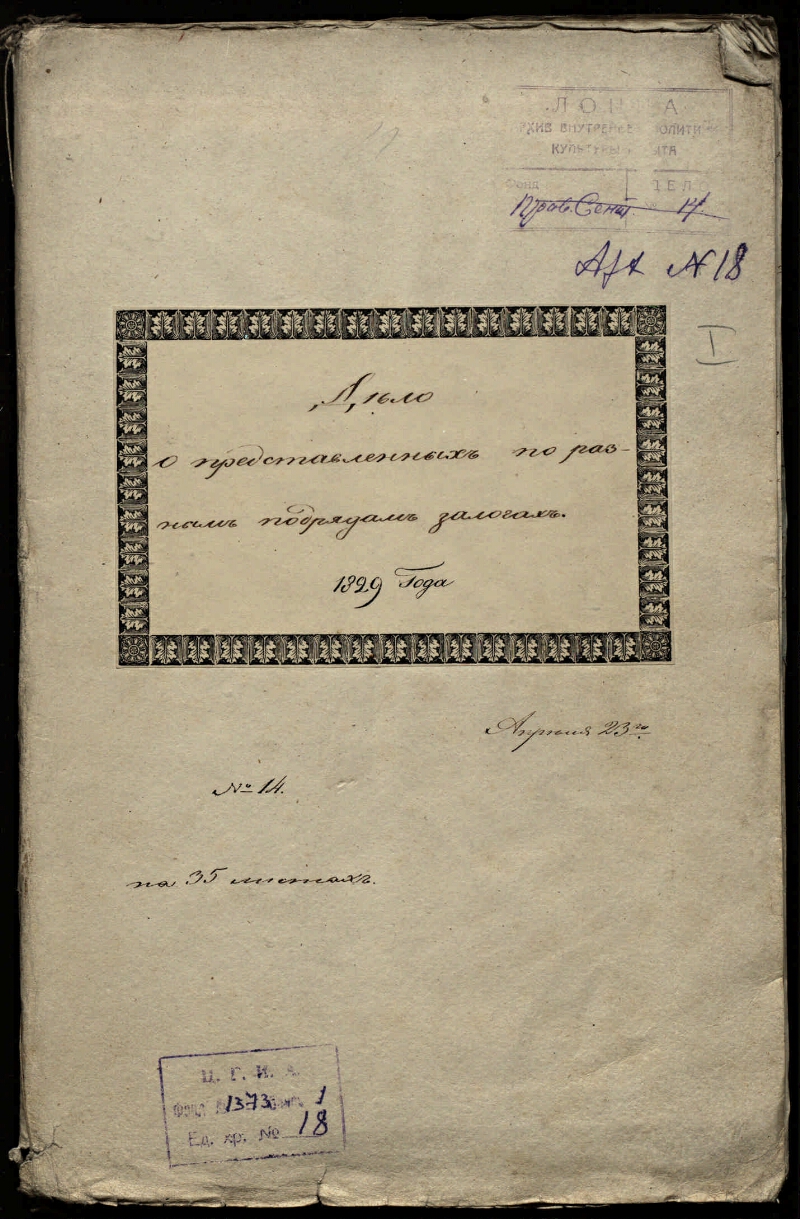 ЛО
АРХИВ ВНУТРЕННЕЙ ПОЛИТИКИ
КУЛЬТУРЫ И БЫТА
Фонд
Прав. Сенат. № 14
№ 18
I
Дѣло
о представленныхъ по раз-
нымъ подрядамъ залогахъ.
1829 Года
Апрѣля 23го.
№ 14.
на 35 листахъ.
Ц. Г. И. А.
Фонд № 1373 Опись 1
Ед. хр. № 18